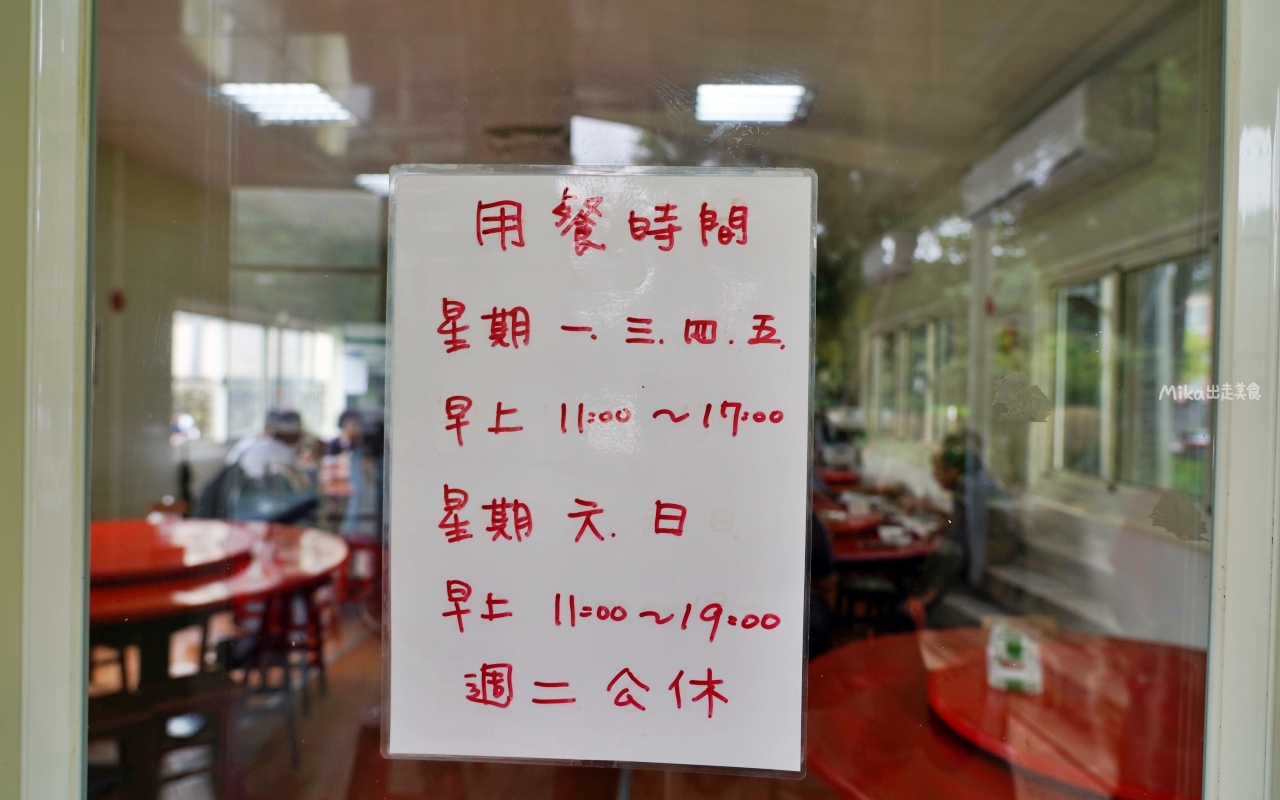 用餐時間
星期一.三.四.五.
早上 11:00～17:00
星期六.日
早上 11:00～19:00
週二公休
Mika出走美食